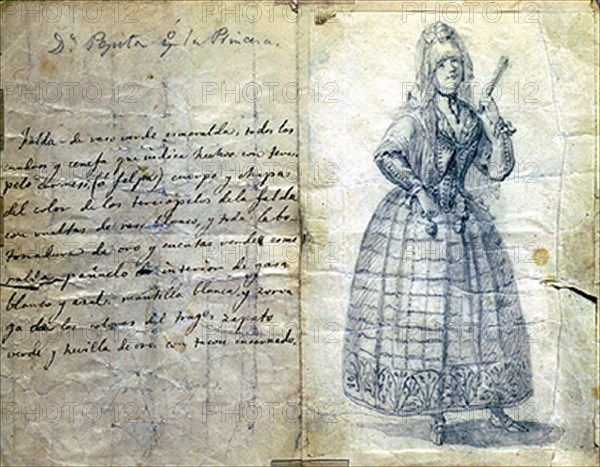 Dª Pepita ó la Princesa.
Falda - de raso verde esmeralda, todos los
cuadros y cenefa que indica hechos con tercio
pelo carmesí (ó felpa) cuerpo y chupa
del color de los terciopelos de la falda
con vueltas de raso blanco, y toda la bo
tonadura de oro y verdes esme
ralda, pañuelo interior de gasa
blanco y azul, mantilla blanca, y
ga de los colores del traje, zapato
verde y hevilla de oro con tacon encarnado.
PHOTO12